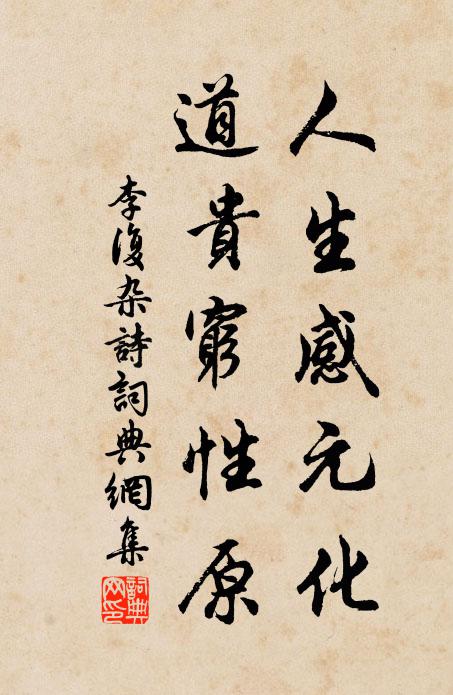 人生感元化
道貴窮性原
李復杂詩詞典網集
詞典
网印